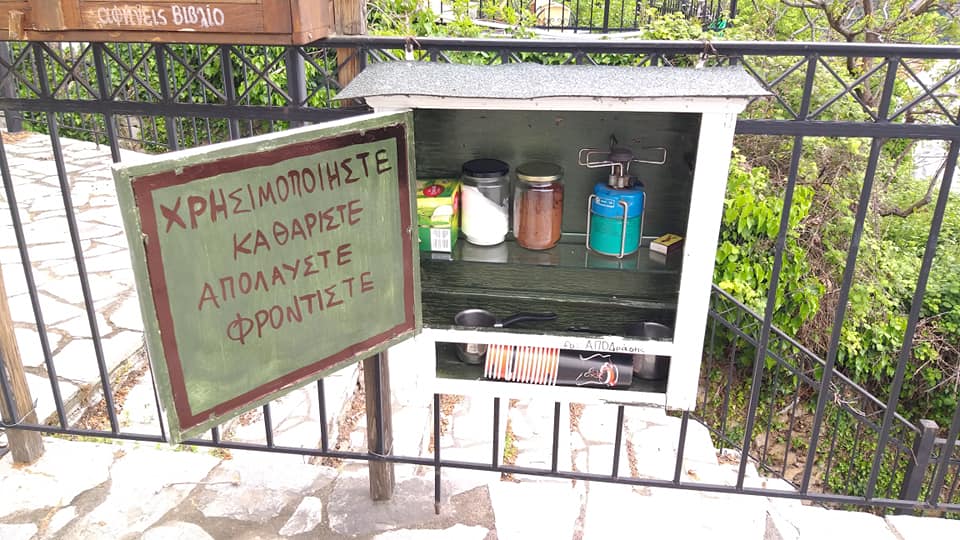 αφήνεις Βιβλίο
ΧΡΗΣΙΜΟΠΟΙΗΣΤΕ
ΚΑΘΑΡΙΣΤΕ
ΑΠΟΛΑΥΣΤΕ
ΦΡΟΝΤΙΣΤΕ